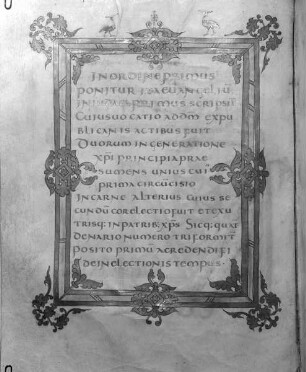 IN ORDINE PRIMUS
PONITUR
PRIMUS SCRIPSIT
CUIUS UOCATIO AD DNM EX PU
BLICANIS ACTIBUS FUIT
DUORUM IN GENERATIONE
XPI PRINCIPIA PRAE
SUMENS UNIUS CUI
PRIMA CIRCUCISIO
IN CARNE ALTERIUS CUIUS SE
CUNDU COR ELECTIO FUIT ET EX U
TRISQ: IN PATRIB; XPS SICQ: QUAT
DENARIO NUMERO TRIFORMIT
POSITO PRIMU A CREDENDI FI
DE IN ELECTIONIS TEMPUS.